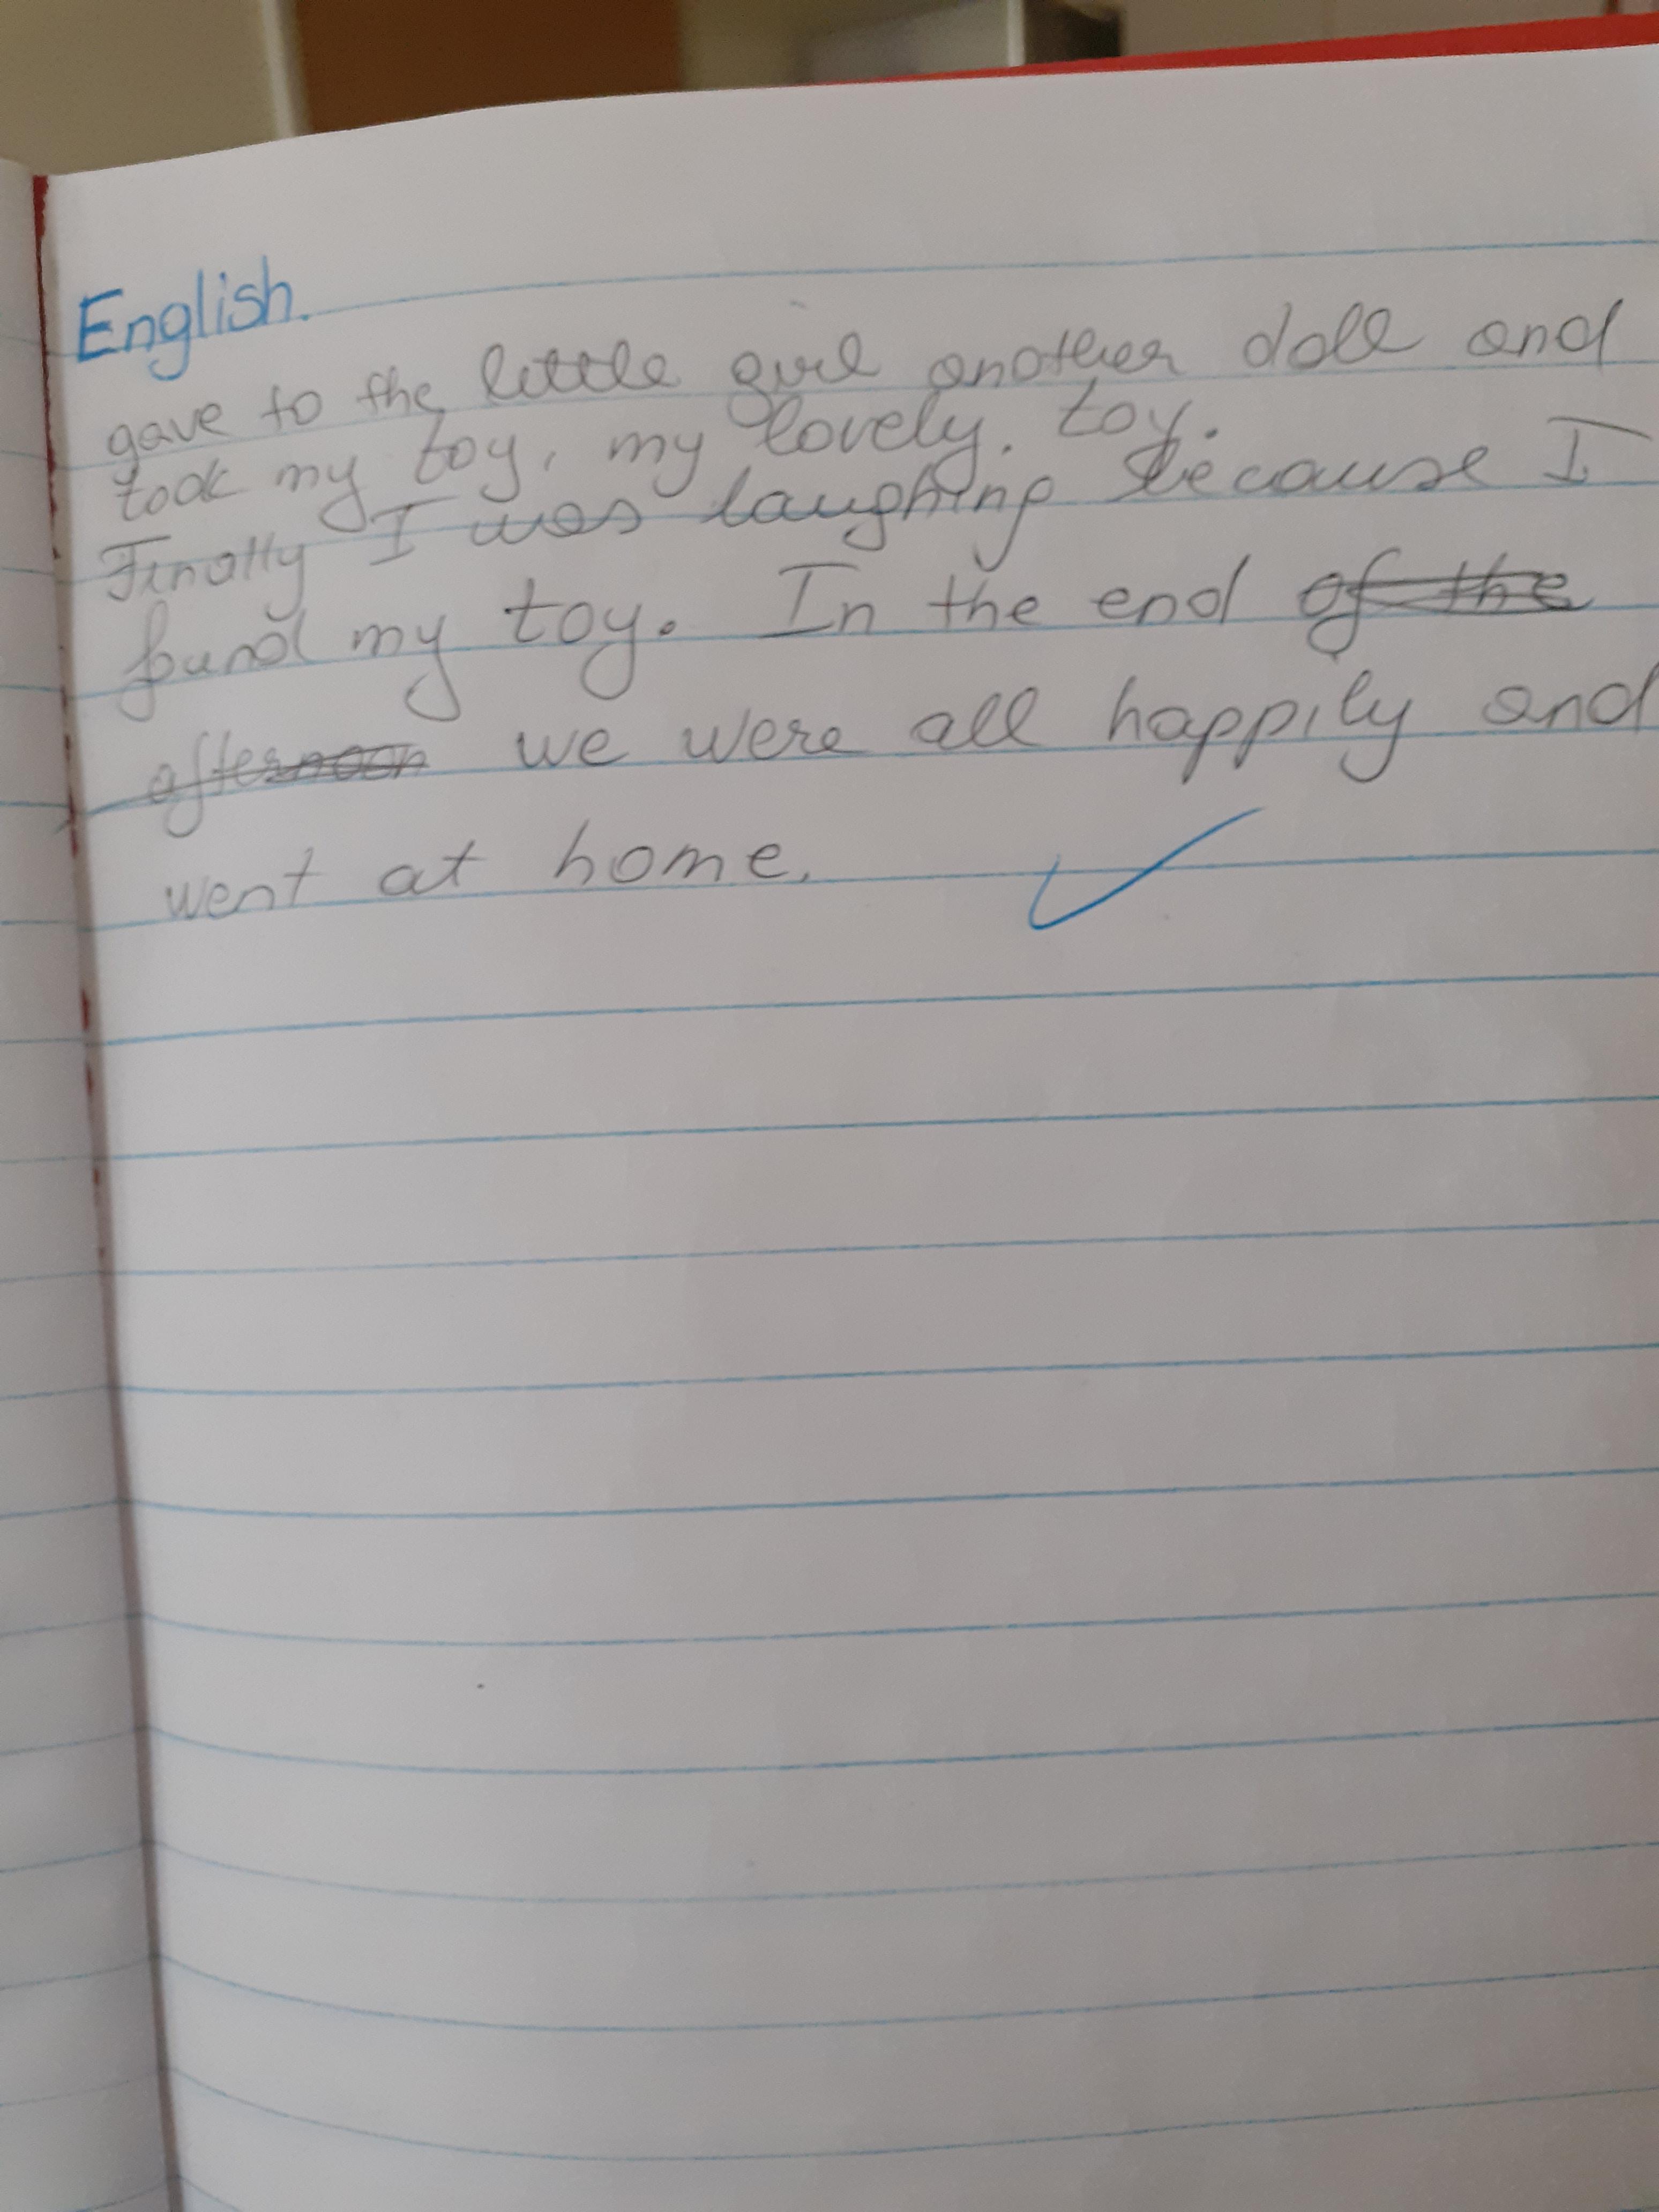 English.
gave to the little girl another doll and
took my toy, my lovely. toy.
Finally I was laughing because I
fund my toy. In the end of the
afternoon we were all happily and
went at home.